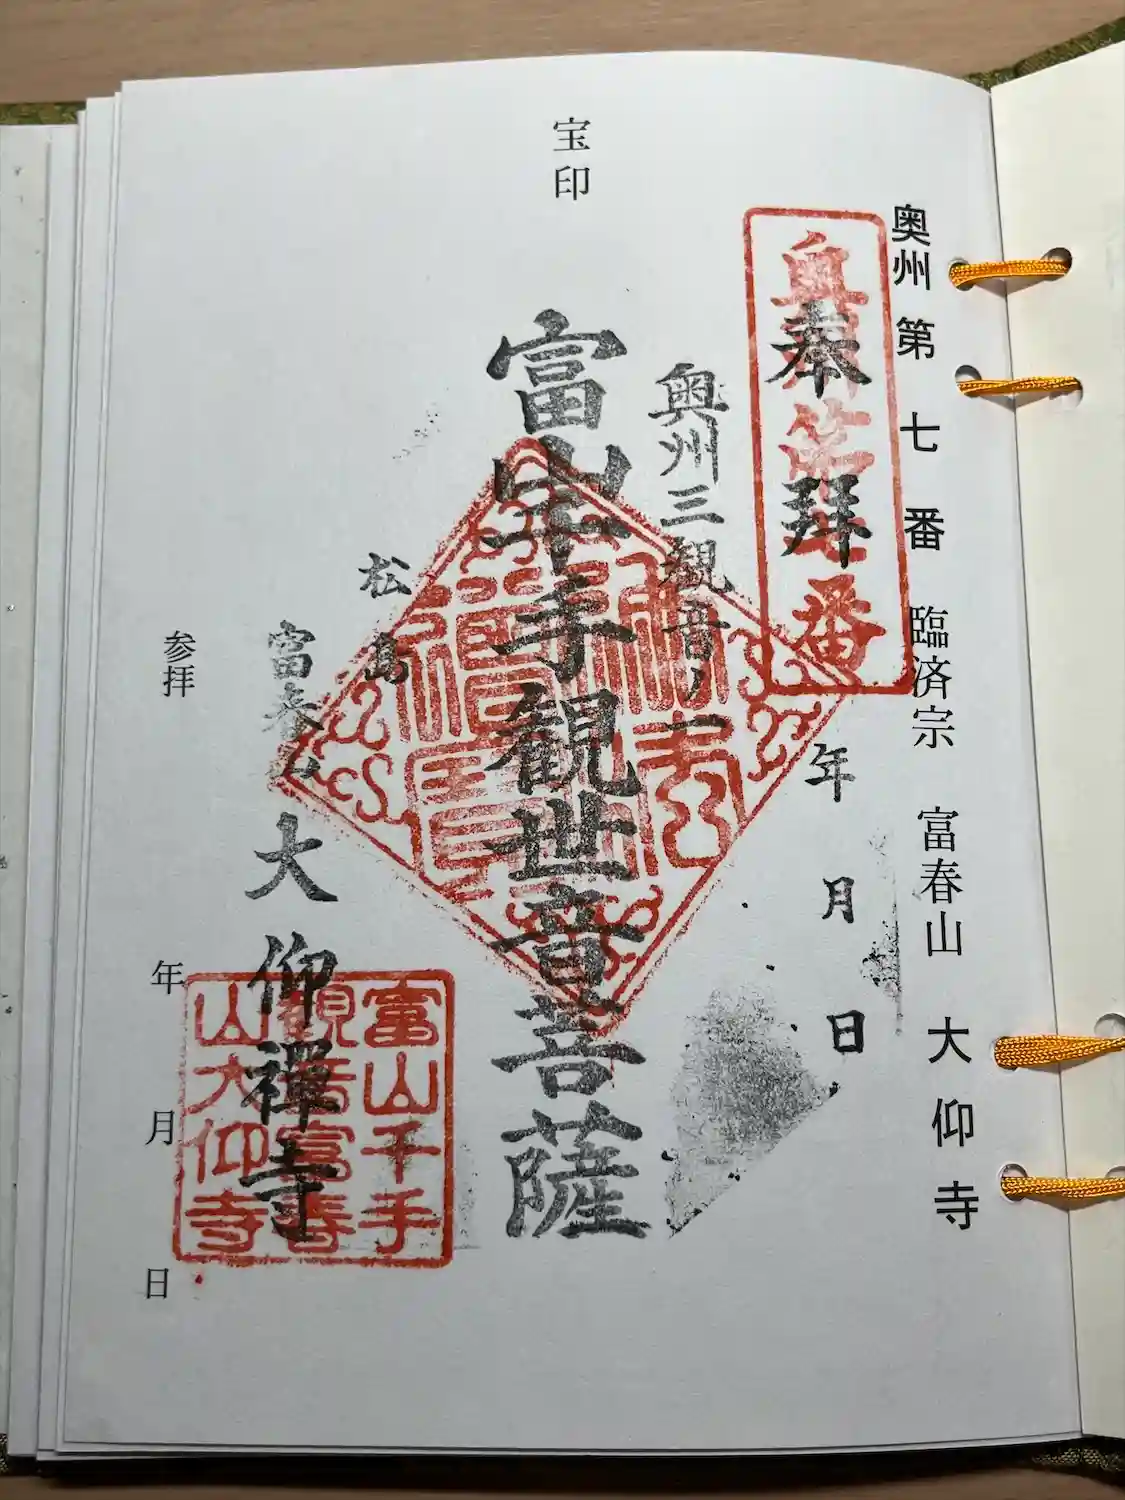 宝印
奥州第七番 臨済宗 富春山 大仰寺
奥州第七番
奉拝
年 月 日
奥州三観音ノ
富山千手観世音菩薩
松島
富春山 大仰禅寺
富山千手
観音富春
山大仰寺
参拝 年 月 日